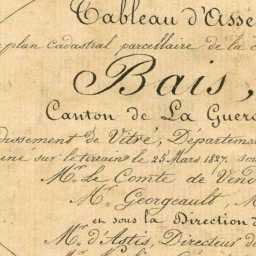 Tableau d'Asse
plan cadastral parcellaire de la
Bais,
Canton de La Guer
dissement de Vitré, Départeme
ine sur le terrain le 25 Mars 1827. sou
Mr. Le Comte de Ven
Mr. Georgeault, M
et sous la Direction d
Mr. d'Astis, Directeur de